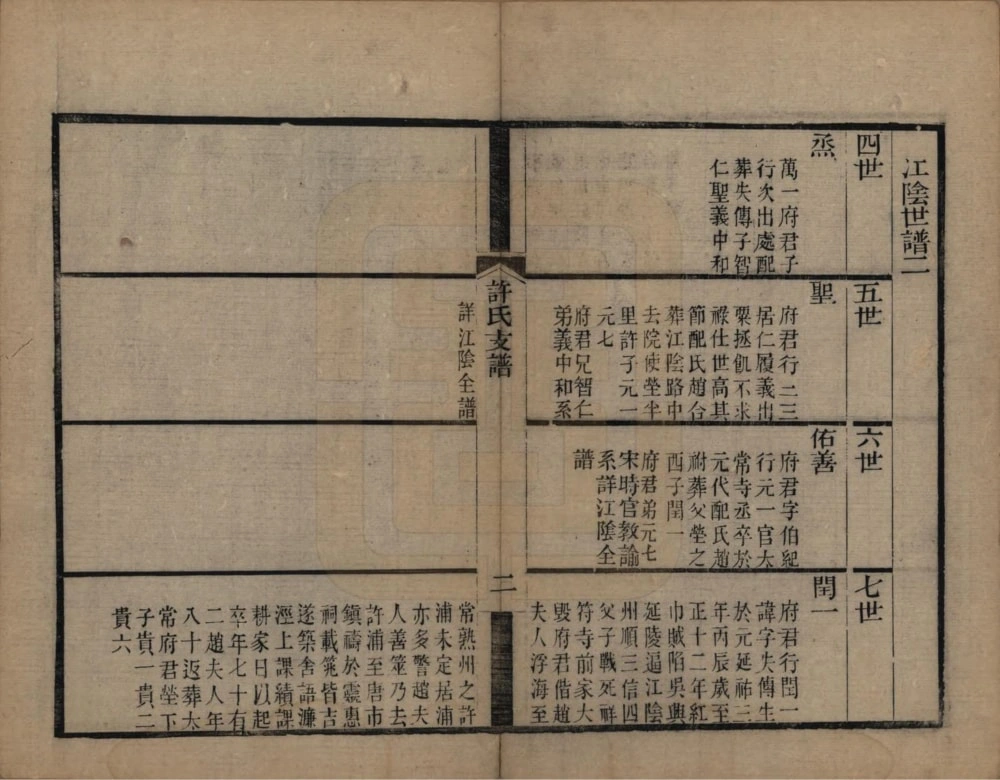 江陰世譜二
四世
烝
萬一府君子
行次出處配
葬失傳子智
仁聖義中和
五世
聖
府君行二三
居仁履義出
粟拯飢不求
祿仕世高其
節配氏趙合
葬江陰路中
去院使塋半
里許子元一
元七
府君兄智仁
弟義中和系
詳江陰全譜
六世
佑善
府君字伯紀
行元一官太
常寺丞卒於
元代配氏趙
祔葬父塋之
西子閏一
府君弟元七
宋時官教諭
系詳江陰全
譜
七世
閏一
府君行閏一
諱字失傳生
於元延祐三
年丙辰歲至
正十二年紅
巾賊陷吳興
延陵逼江陰
州順三信四
父子戰死祥
符寺前家大
毀府君偕趙
夫人浮海至
許氏支譜
二
常熟州之許
浦未定居浦
亦多警趙夫
人善筮乃去
許浦至唐市
鎮禱於靈惠
祠載筮皆吉
遂築舍語濂
涇上課績課
耕家日以起
卒年七十有
二趙夫人年
八十返葬太
常府君塋下
子貴一貴二
貴六